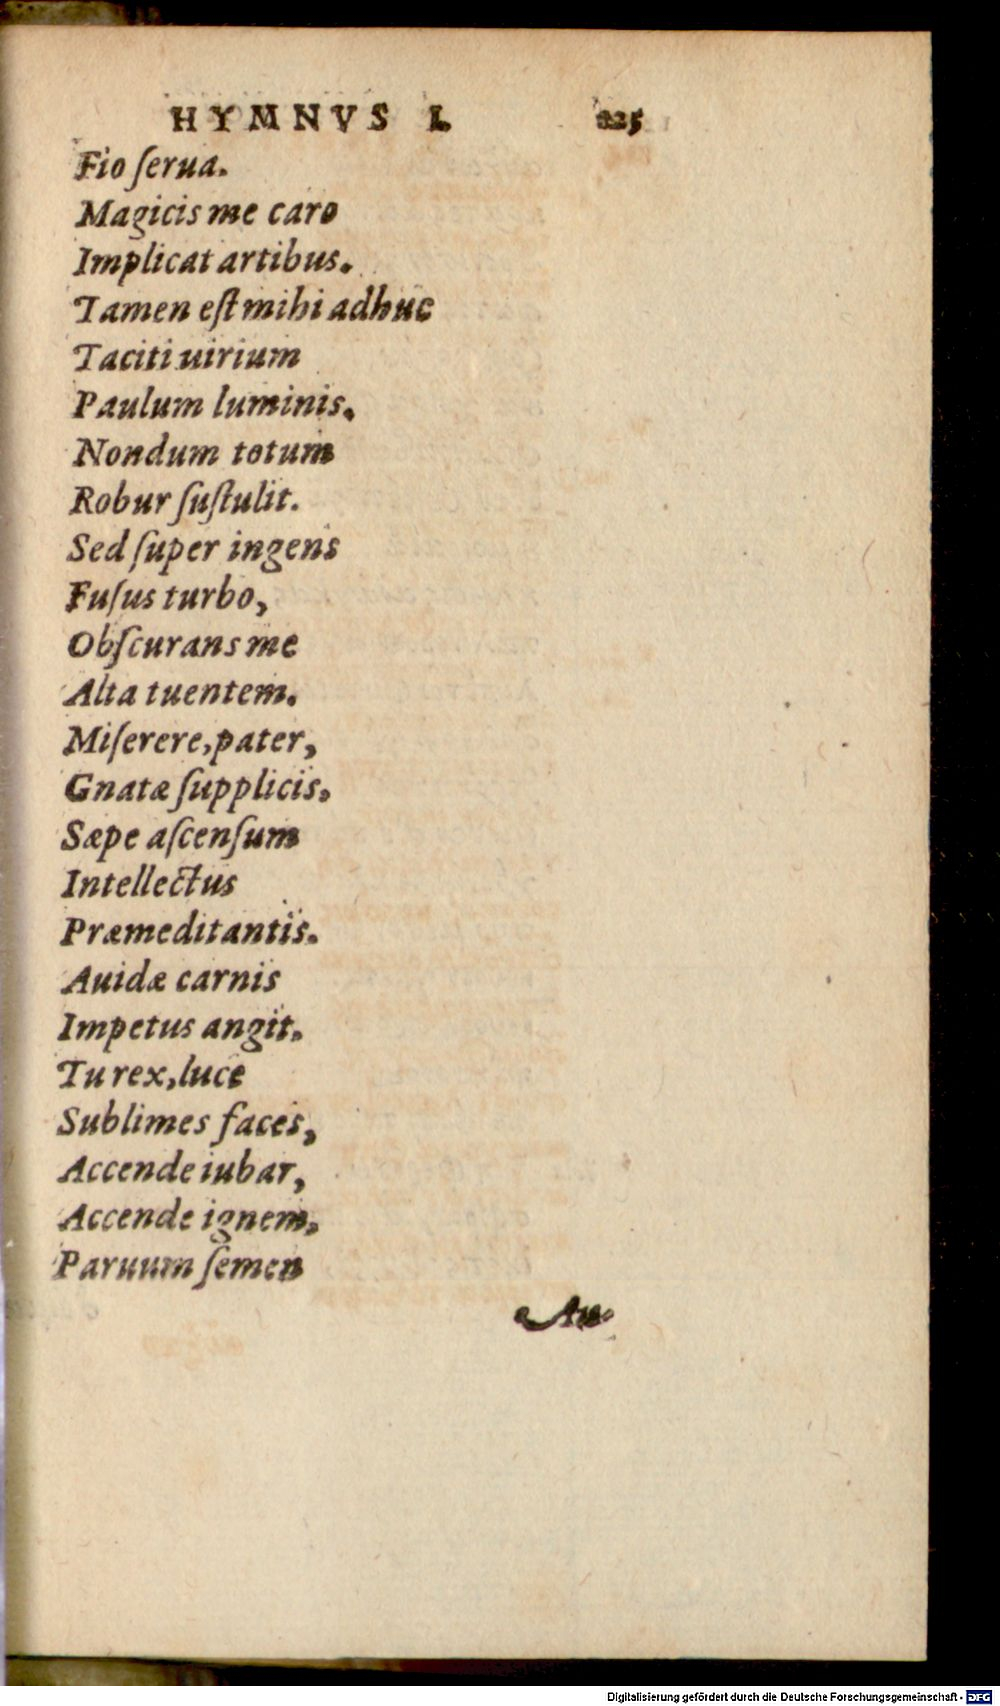 HYMNVS I. 225
Fio ſerua.
Magicis me caro
Implicat artibus.
Tamen eſt mihi adhuc
Taciti uirium
Paulum luminis.
Nondum totum
Robur ſuſtulit.
Sed ſuper ingens
Fuſus turbo,
Obſcurans me
Alta tuentem.
Miſerere, pater,
Gnatæ ſupplicis.
Sæpe aſcenſum
Intellectus
Præmeditantis.
Auidæ carnis
Impetus angit.
Tu rex, luce
Sublimes faces,
Accende iubar,
Accende ignem,
Paruum ſemen
Au-
Digitalisierung gefördert durch die Deutsche Forschungsgemeinschaft - DFG